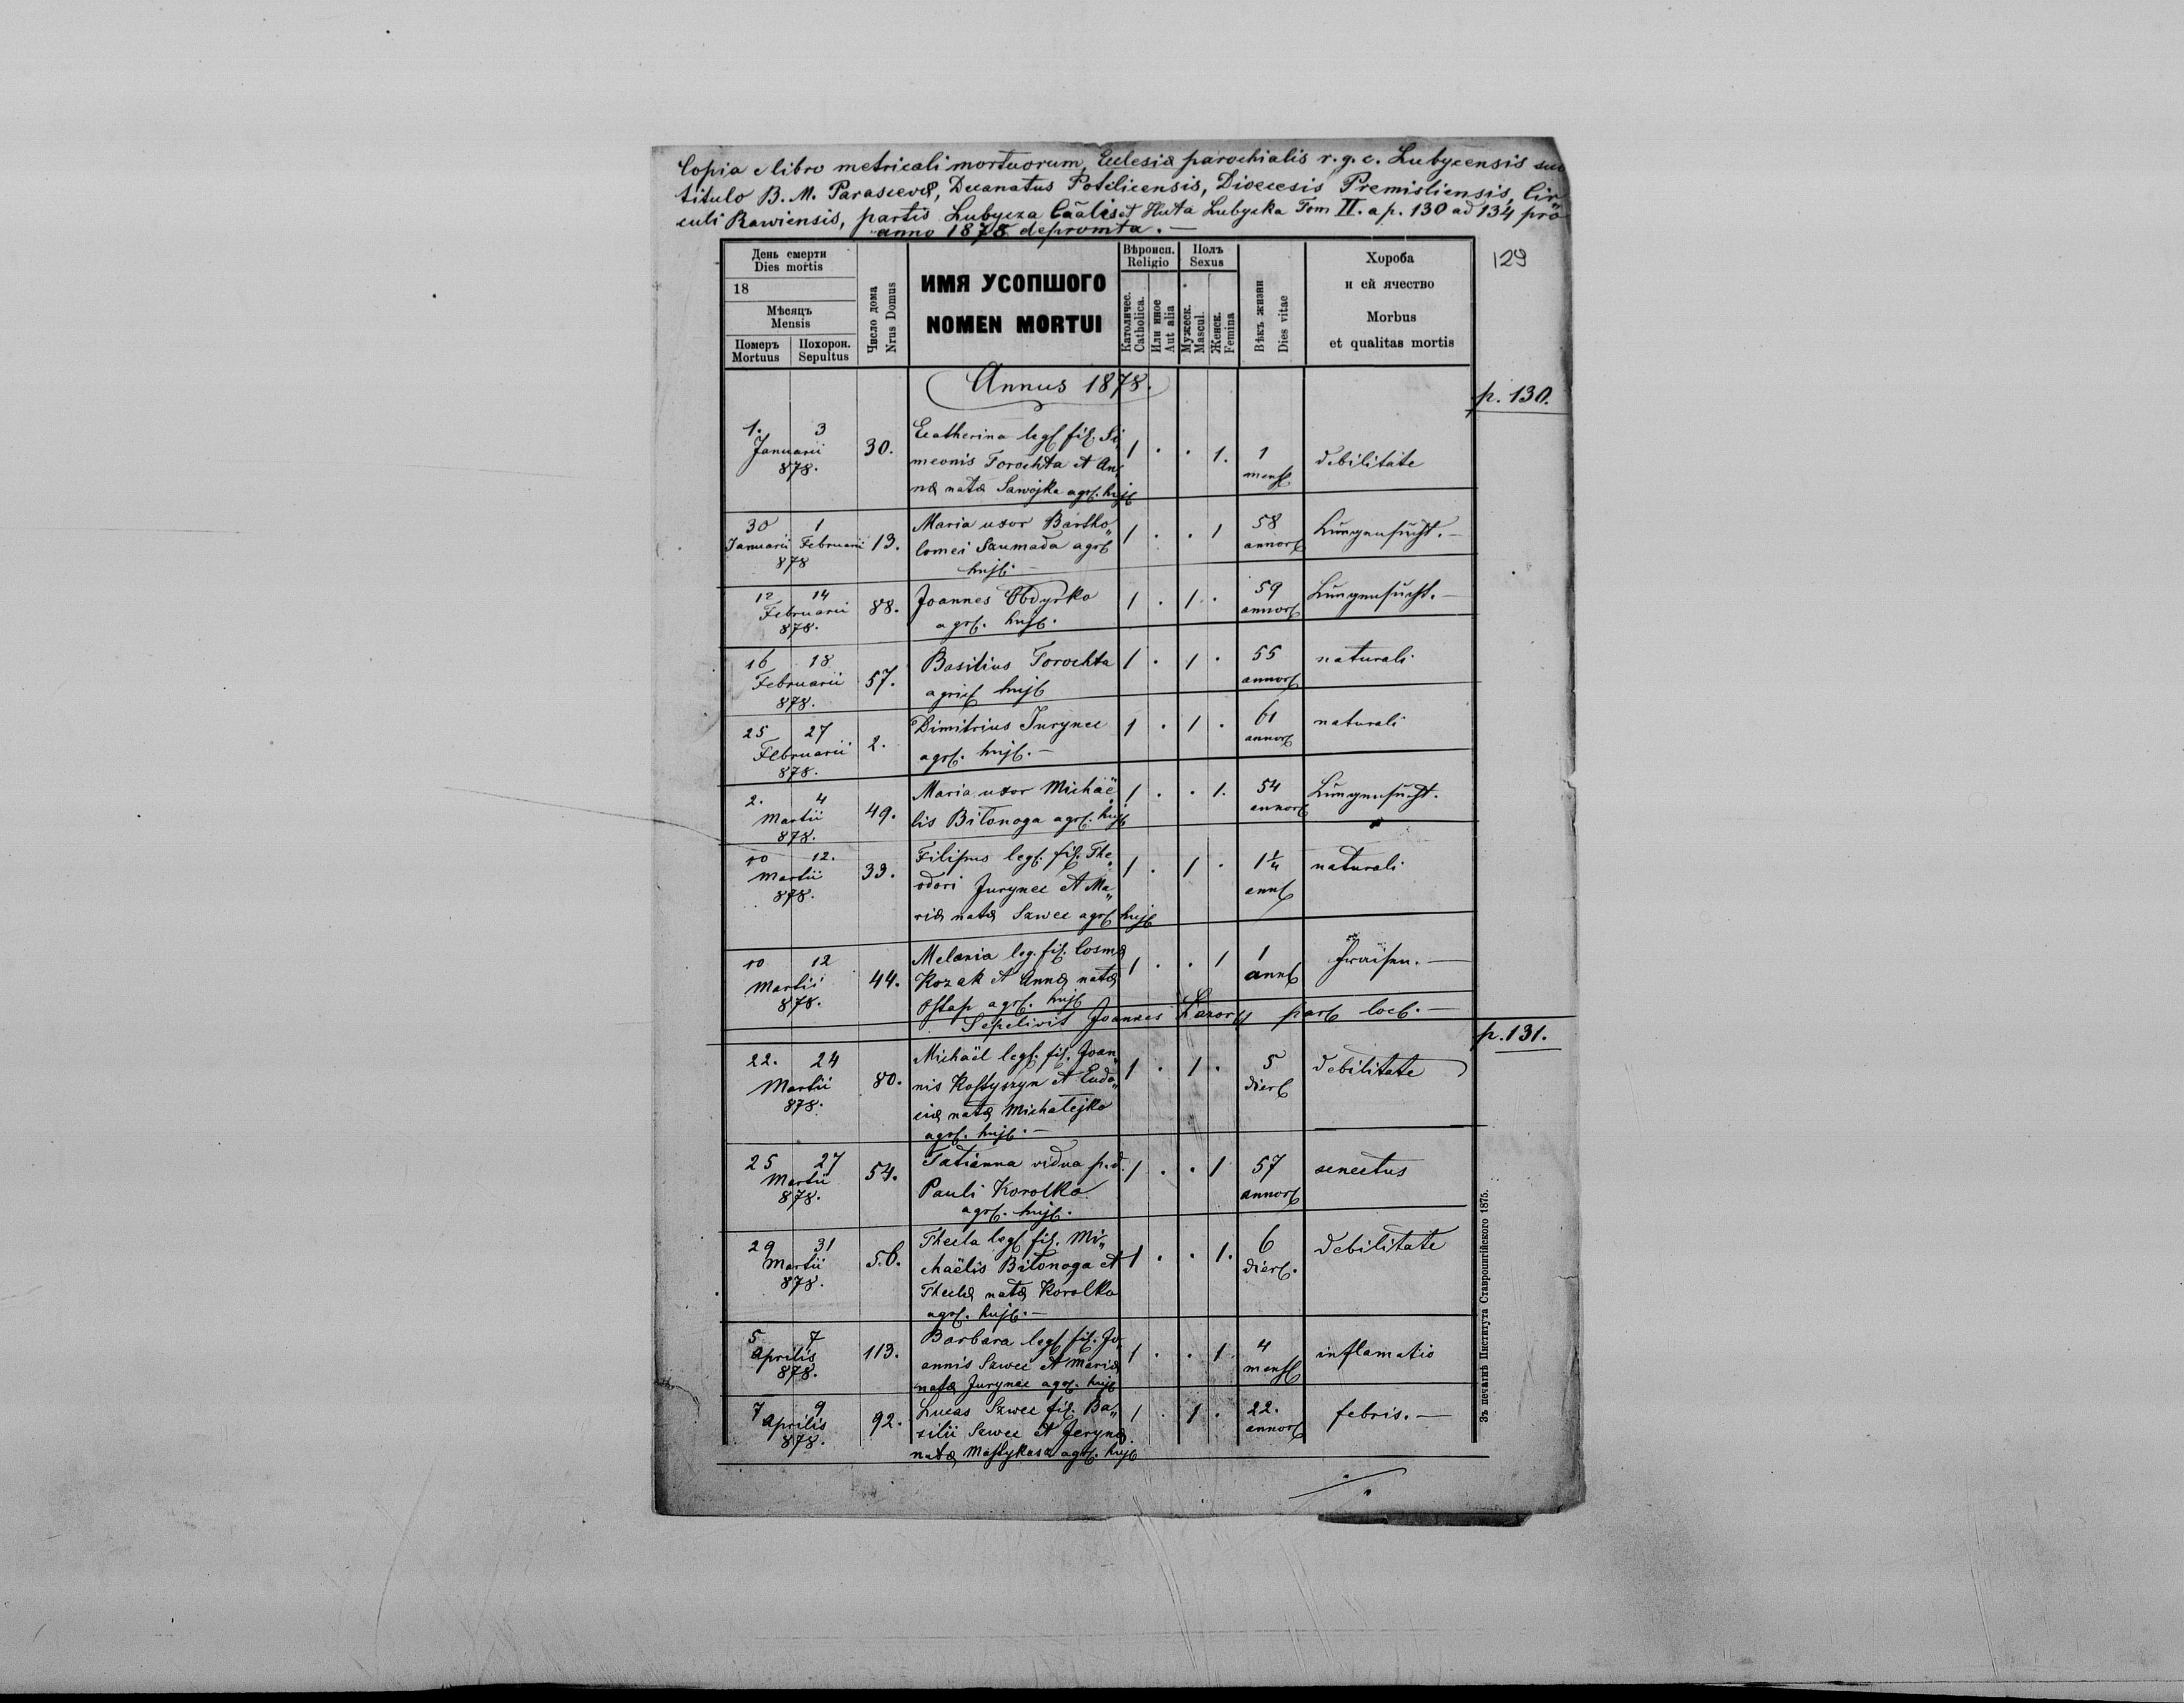 Copia e libro metricali mortuorum, Ecclesiæ parochialis r. g. c. Lubycensis sub
titulo B. M. Parascevæ, Decanatus Potelicensis, Dioecesis Premisliensis, Cir„
culi Rawiensis, partis Lubycza Caãlis et Huta Lubycka Tom II. a p. 130 ad 134 pro
anno 1878 depromta. —
129
День смерти
Dies mortis
18
Мѣсяцъ
Mensis
Померъ
Mortuus
Похорон.
Sepultus
Число дома
Nrus Domus
ИМЯ УСОПШОГО
NOMEN MORTUI
Вѣроисп.
Religio
Католичес.
Catholica.
Или иное
Aut alia
Полъ
Sexus
Мужеск.
Mascul.
Женск.
Femina
Вѣкъ жизни
Dies vitae
Хороба
и ей ячество
Morbus
et qualitas mortis
Annus 1878.
p. 130.
1. 3 Januarii 878. 30.
Ecatherina leg. fil. Si„
meonis Torochta et An„
næ natæ Sawojka agr. huj.
1 . . 1. 1 mens. debilitate
30 Januarii 1 Februarii 878 13.
Maria uxor Bartho„
lomei Szumada agr.
huj. —
1 . . 1 58 annor. Lungensucht. —
12 14 Februarii 878. 88.
Joannes Obdyrko
agr. huj.
1 . 1 . 59 annor. Lungensucht. —
16 18 Februarii 878. 57.
Basilius Torochta
agric. huj.
1 . 1 . 55 annor. naturali
25 27 Februarii 878. 2.
Dimitrius Jurynec
agr. huj. —
1 . 1 . 61 annor. naturali
2. 4 Martii 878. 49.
Maria uxor Michaë„
lis Biłonoga agr. huj.
1 . . 1. 54 annor. Lungensucht.
10 12. Martii 878. 33.
Filipus leg. fil. The„
odori Jurynec et Ma„
riæ natæ Szwec agr. huj.
1 . 1 . 1¼ ann. naturali
10 12 Martii 878. 44.
Melania leg. fil. Cosmæ
Kozak et Annæ natæ
Ostap agr. huj.
1 . . 1 1 ann. Fraisen. —
Sepelivit Joannes par. loc. —
p. 131.
22. 24 Martii 878. 80.
Michaël leg. fil. Joan„
nis Kostyszyn et Eudo„
ciæ natæ Michalejko
agr. huj. —
1 . 1 . 5 dier. debilitate
25 27 Martii 878. 54.
Tatianna vidua p. d.
Pauli Korolko
agr. huj.
1 . . 1 57 annor. senectus
29 31 Martii 878. 56.
Thecla leg. fil. Mi„
chaëlis Biłonoga et
Theclæ natæ Korolko
agr. huj. —
1 . . 1. 6 dier. debilitate
5 7 Aprilis 878. 113.
Barbara leg. fil. Jo„
annis Szwec et Mariæ
natæ Jurynec agr. huj.
1 . . 1. 4 mens. inflamatio
7 9 Aprilis 878. 92.
Lucas Szwec fil. Ba„
silii Szwec et Jerynæ
natæ agr. huj.
1 . 1 . 22. annor. febris. —
Зъ печатнѣ Института Ставропигійского 1875.